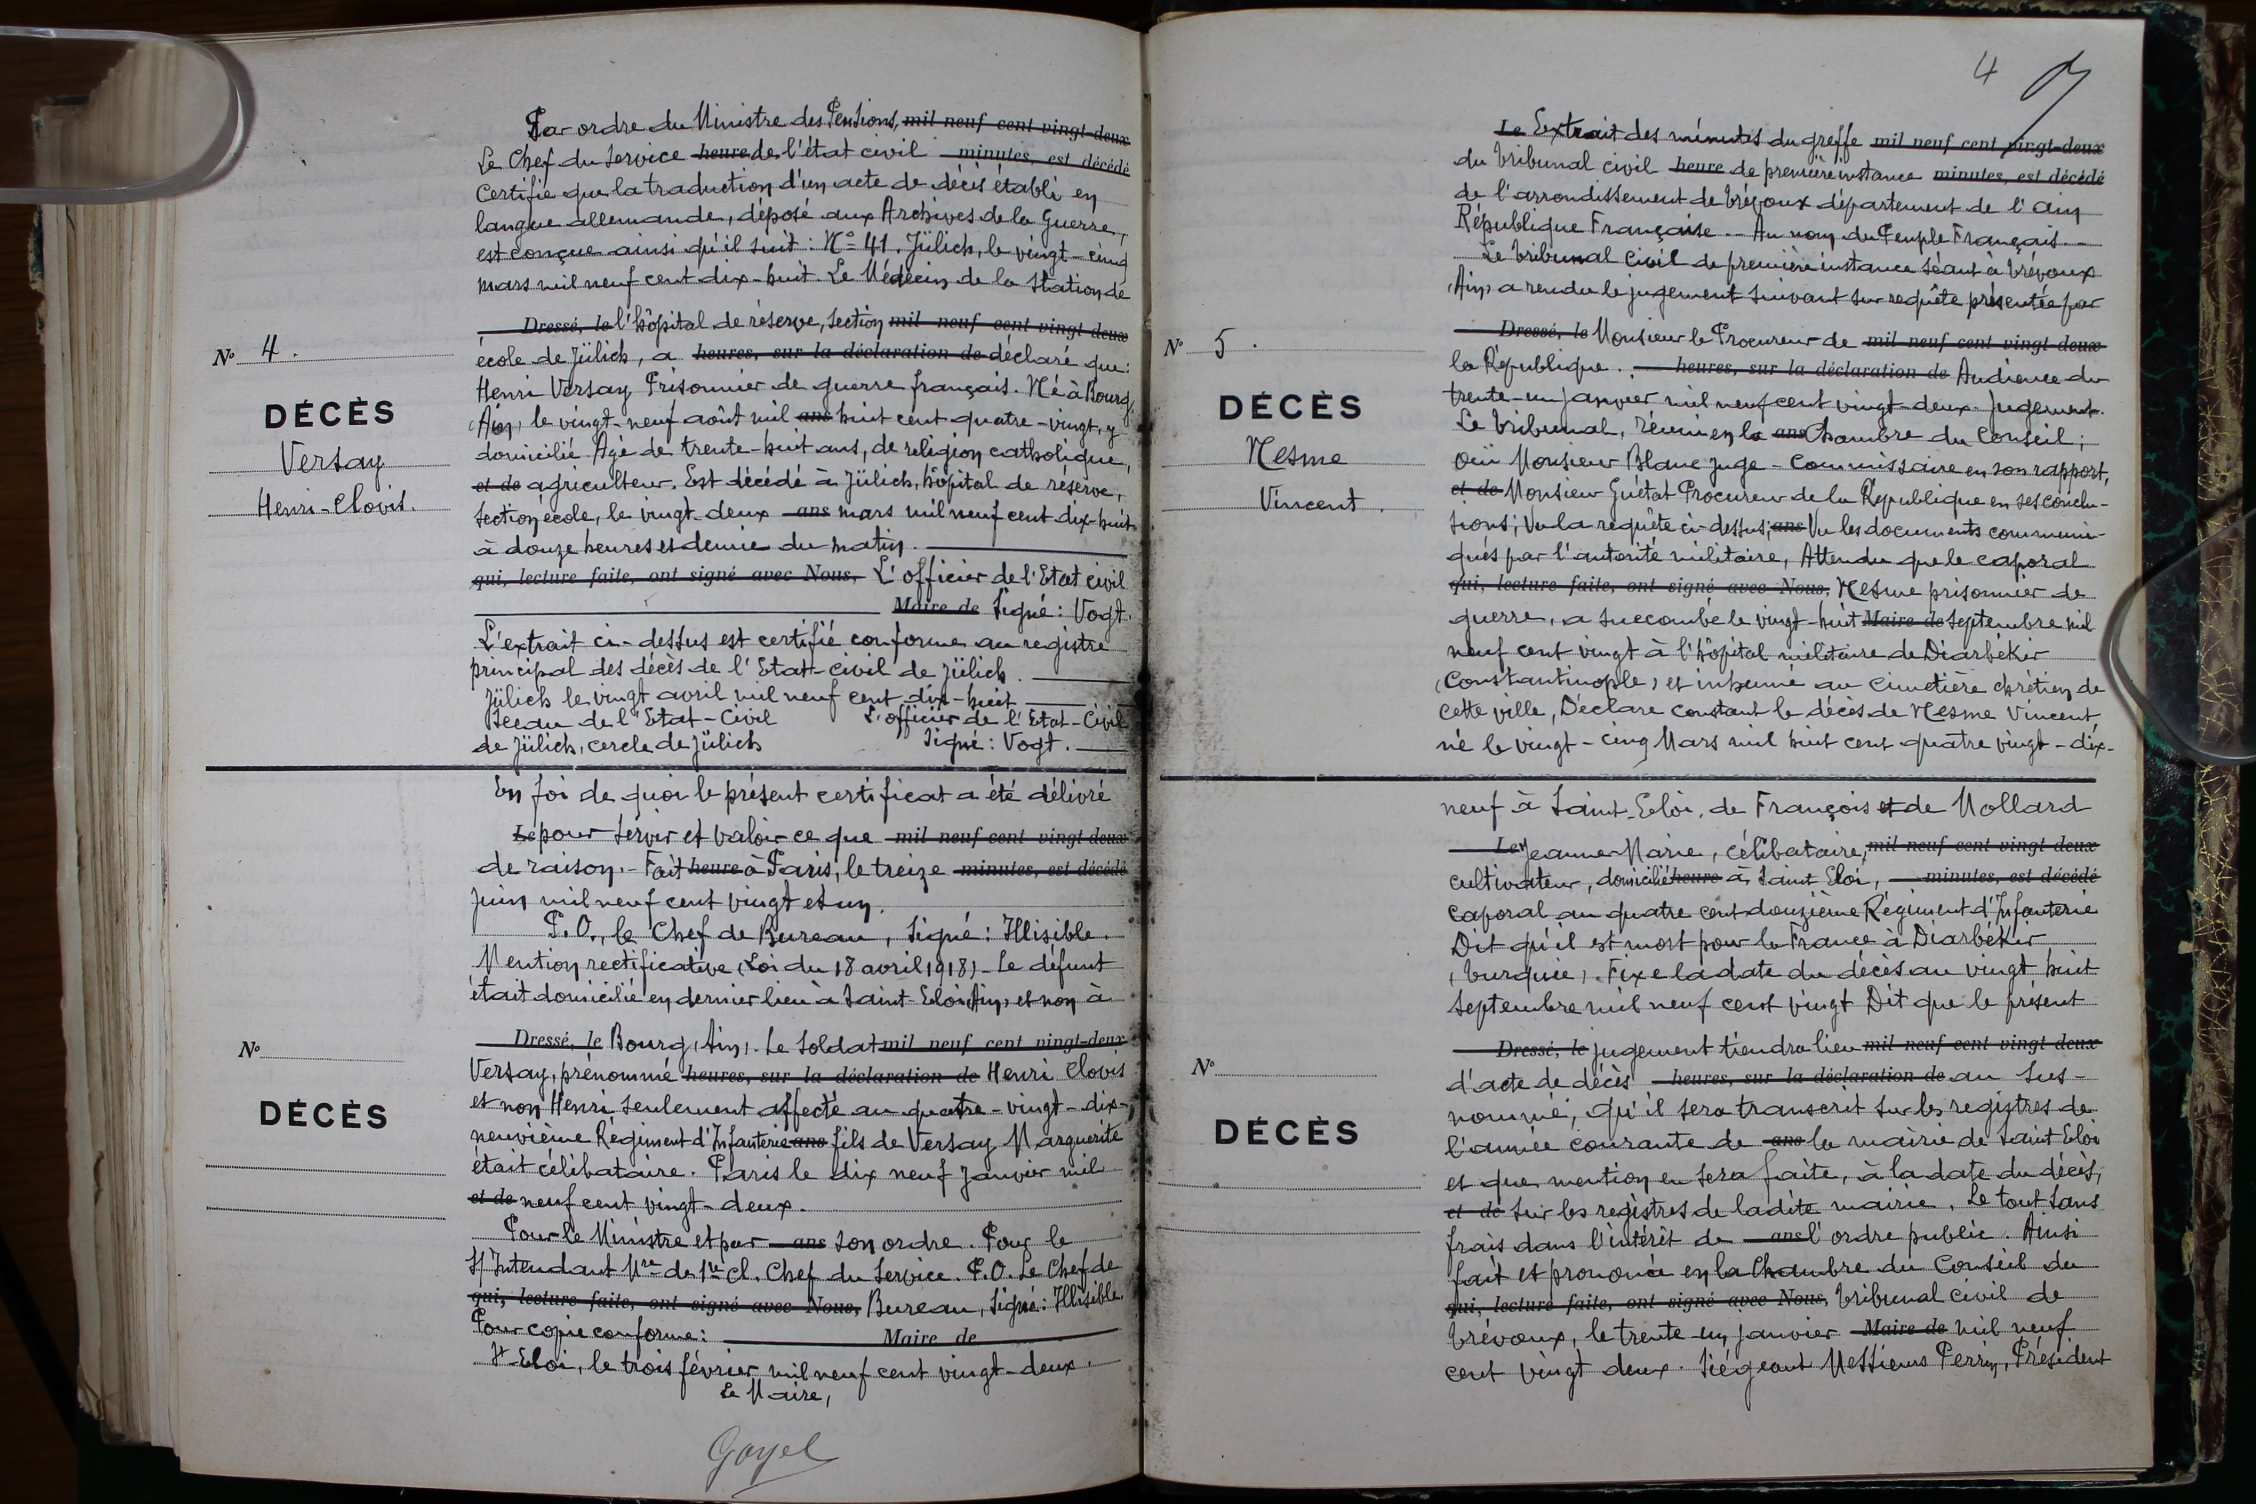 Par ordre du Ministre des Pensions, mil neuf cent vingt-deux
Le Chef du Service heure de l'état civil minutes, est décédé
Certifie que la traduction d'un acte de décès établi en
langue allemande, déposé aux Archives de la Guerre,
est conçue ainsi qu'il suit : N° 41. Jülich, le vingt-cinq
mars mil neuf cent dix-huit. Le Médecin de la Station de
Dressé, le l'hôpital de réserve, section mil neuf cent vingt-deux
N° 4.
école de Jülich, a heures, sur la déclaration de déclaré que :
Henri Versay Prisonnier de guerre français. Né à Bourg,
DÉCÈS
(Ain) le vingt-neuf août mil ans huit cent quatre-vingt, y
Versay
domicilié Agé de trente-huit ans, de religion catholique,
Henri-Clovis.
et de agriculteur. Est décédé à Jülich, hôpital de réserve,
section école, le vingt-deux ans mars mil neuf cent dix-huit
à douze heures et demie du matin.
qui, lecture faite, ont signé avec Nous, L'officier de l'Etat civil
Maire de Signé : Vogt.
L'extrait ci-dessus est certifié conforme au registre
principal des décès de l'Etat-civil de Jülich.
Jülich le vingt avril mil neuf cent dix-huit
Sceau de l'Etat-Civil L'officier de l'Etat-Civil
de Jülich, cercle de Jülich Signé : Vogt.
En foi de quoi le présent certificat a été délivré
Le pour servir et valoir ce que mil neuf cent vingt-deux
de raison. - Fait heure à Paris, le treize minutes, est décédé
Juin mil neuf cent vingt et un.
P.O., le Chef de Bureau, Signé : Illisible.
Mention rectificative (Loi du 18 avril 1918) - Le défunt
était domicilié en dernier lieu à Saint-Eloi (Ain) et non à
Dressé, le Bourg (Ain). Le soldat mil neuf cent vingt-deux
N°
Versay, prénommé heures, sur la déclaration de Henri Clovis
et non Henri seulement affecté au quatre-vingt-dix-
DÉCÈS
neuvième Régiment d'Infanterie ans fils de Versay Marguerite
était célibataire. Paris le dix neuf Janvier mil
et de neuf cent vingt-deux.
Pour le Ministre et par ans son ordre. Pour le
S/Intendant Mre de 1re Cl. Chef du Service. P.O. Le Chef de
qui, lecture faite, ont signé avec Nous, Bureau, Signé : Illisible.
Pour copie conforme : Maire de
St-Eloi, le trois février mil neuf cent vingt-deux.
Le Maire,
Goyel
4
Le Extrait des minutes du greffe mil neuf cent vingt-deux
du tribunal civil heure de première instance minutes, est décédé
de l'arrondissement de Trévoux département de l'Ain
République Française. - Au nom du Peuple Français. -
Le tribunal civil de première instance séant à Trévoux
(Ain) a rendu le jugement suivant sur requête présentée par
Dressé, le Monsieur le Procureur de mil neuf cent vingt-deux
N° 5.
la République. heures, sur la déclaration de Audience du
trente-un janvier mil neuf cent vingt-deux. Jugement.
DÉCÈS
Le tribunal, réuni en la ans Chambre du Conseil ;
Nesme
Ouï Monsieur Blanc juge-commissaire en son rapport,
et de Monsieur Guétat Procureur de la République en ses conclu-
Vincent.
sions ; Vu la requête ci-dessus ; ans Vu les documents communi-
qués par l'autorité militaire, Attendu que le caporal
qui, lecture faite, ont signé avec Nous, Nesme prisonnier de
guerre, a succombé le vingt-huit Maire de septembre mil
neuf cent vingt à l'hôpital militaire de Diarbékir
(Constantinople) et inhumé au cimetière chrétien de
cette ville, Déclare constant le décès de Nesme Vincent
né le vingt-cinq Mars mil huit cent quatre vingt-dix-
neuf à Saint-Eloi, de François et de Mollard
Le Jeanne-Marie, célibataire, mil neuf cent vingt-deux
cultivateur, domicilié heure à Saint Eloi, minutes, est décédé
caporal au quatre cent douzième Régiment d'Infanterie
Dit qu'il est mort pour la France à Diarbékir
(Turquie). Fixe la date du décès au vingt huit
septembre mil neuf cent vingt Dit que le présent
Dressé, le jugement tiendra lieu mil neuf cent vingt-deux
N°
d'acte de décès heures, sur la déclaration de au sus-
nommé, qu'il sera transcrit sur les registres de
DÉCÈS
l'année courante de ans la mairie de Saint Eloi
et que mention en sera faite, à la date du décès,
et de sur les registres de ladite mairie, Le tout sans
frais dans l'intérêt de ans l'ordre public. Ainsi
fait et prononcé en la Chambre du Conseil du
qui, lecture faite, ont signé avec Nous, tribunal civil de
Trévoux, le trente-un janvier Maire de mil neuf
cent vingt deux. Siégeant Messieurs Perrin, Président